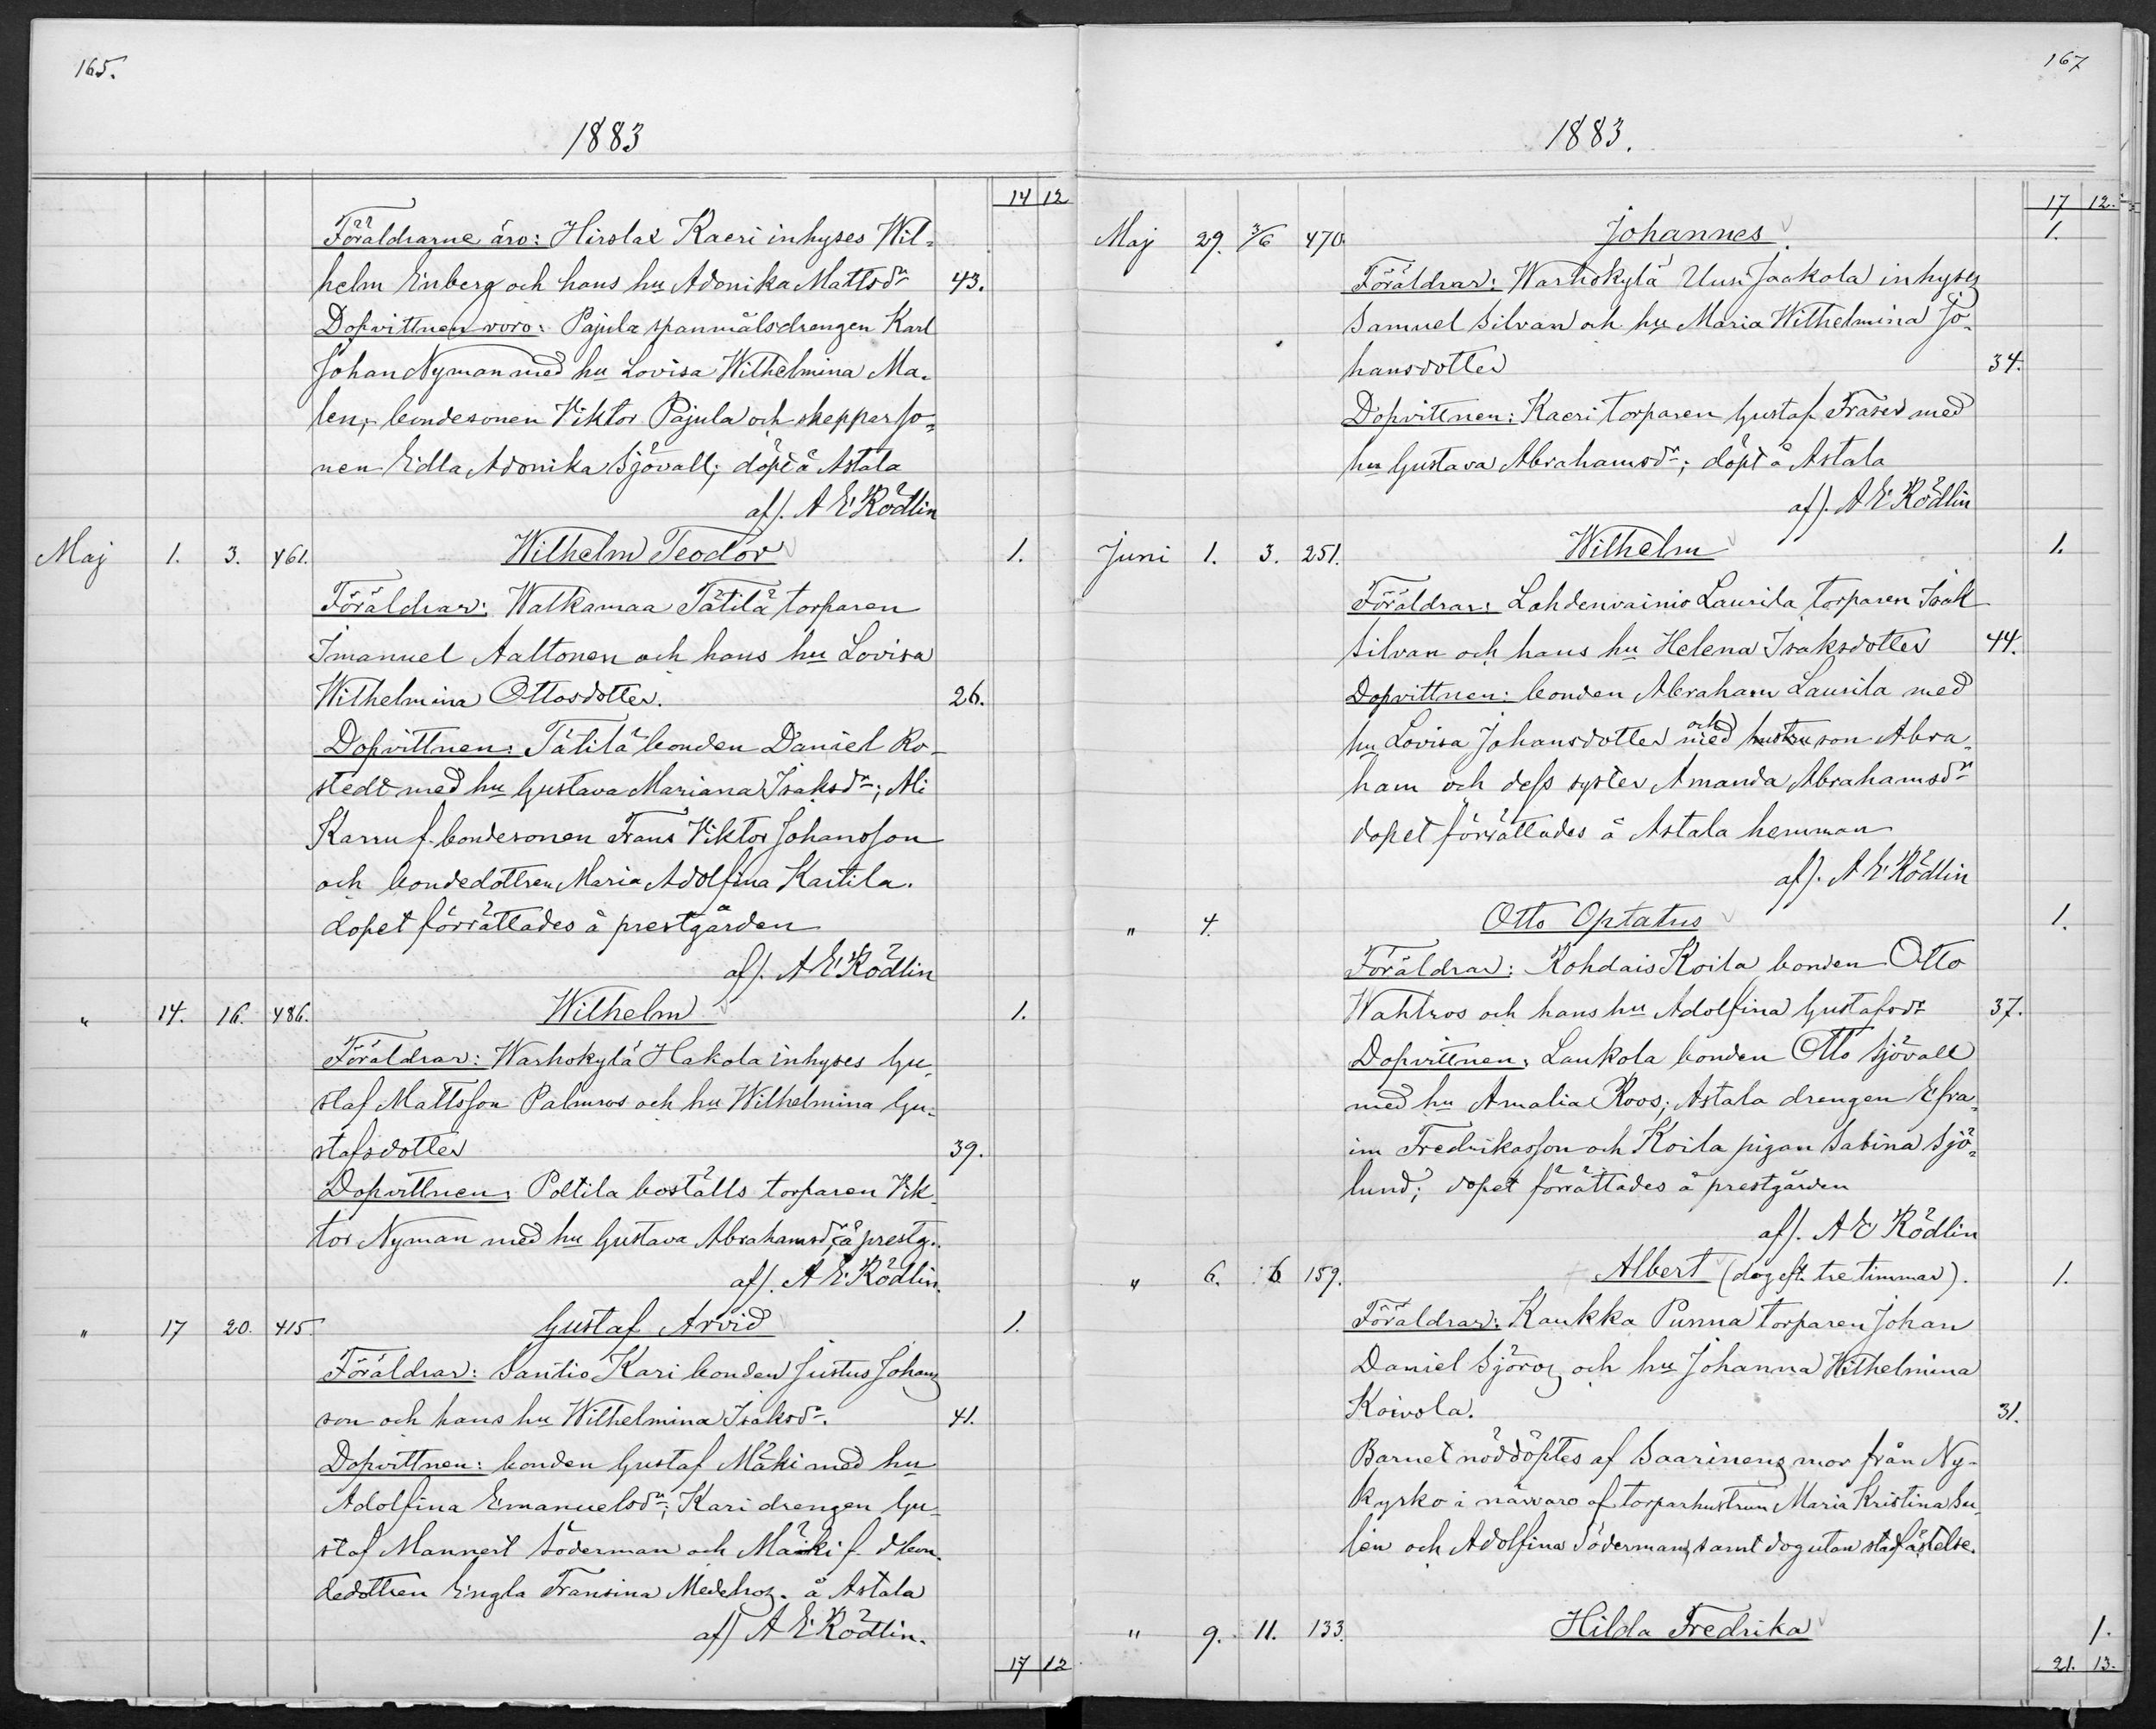 165.
1883
14 12
Föräldrarne äro: Hirslax Kaeri inhyses Wil=
helm Enberg och hans hu Adonika Mattsdr 43.
Dopvittnen voro: Pajula spanmålsdrengen Karl
Johan Nyman med hu Lovisa Wilhelmina Ma-
len; bondesonen Viktor Pajula och skepparjo=
nen Edla Adonika Sjövall; döpt å Astala
af). A E Rödlin
Maj 1. 3. 461. Wilhelm Teodor 1.
Föräldrar: Walkamaa Tätilä torparen
Imanuel Aaltonen och hans hu Lovisa
Wilhelmina Ottosdotter. 26.
Dopvittnen: Tätilä bonden Daniel Ro-
stedt med hu Gustava Mariana Isaksdr; Ali
Karru f. bondesonen Frans Viktor Johansson
och bondedottren Maria Adolfina Kaitila.
dopet förrättades å prestgården
af). A E Rödlin
" 14. 16. 486. Wilhelm 1.
Föräldrar: Warhokylä Hakola inhyses Gu-
staf Mattsson Palmros och hu Wilhelmina Gu-
stafsdotter 39.
Dopvittnen: Poltila boställs torparen Vik-
tor Nyman med hu Gustava Abrahamsdr, å prestg.
af). A E Rödlin.
" 17 20. 415. Gustaf Arvid 1.
Föräldrar: Santio Kari bonden Justus Johans
son och hans hu Wilhelmina Isaksdr. 41.
Dopvittnen: bonden Gustaf Mäki med hu
Adolfina Emanuelsdr; Kari drengen Gu-
staf Mannert Söderman och Mäki f. d bon-
dedottren Engla Fransina Medelros. å Astala
af) A E Rödlin.
17 12
167
1883.
17 12.
Maj 29. 3/6 470. Johannes 1.
Föräldrar: Warhokylä Uusi Jaakola inhyses
Samuel Silvan och hu Maria Wilhelmina Jo-
hansdotter 34.
Dopvittnen: Kaeri torparen Gustaf Fraser med
hu Gustava Abrahamsdr; döpt å Astala
af). A E Rödlin
Juni 1. 3. 251. Wilhelm 1.
Föräldrar: Lahdenvainio Laurila torparen Isak
Silvan och hans hu Helena Isaksdotter 44.
Dopvittnen: bonden Abraham Laurila med
hu Lovisa Johansdotter och med hustru son Abra-
ham och dess syster Amanda Abrahamsdr
dopet förrättades å Astala hemman
af). A E Rödlin
" 4. Otto Optatus 1.
Föräldrar: Kohdais Koila bonden Otto
Wahlros och hans hu Adolfina Gustafsdr 37.
Dopvittnen: Laukola bonden Otto Sjövall
med hu Amalia Roos; Astala drengen Efra-
im Fredriksson och Koila pigan Sabina Sjö-
lund; dopet förrättades å prestgården
af). A E Rödlin
" 6. 6 159. Albert (dog eft. tre timmar). 1.
Föräldrar: Kaukka Punna torparen Johan
Daniel Sjöros och hu Johanna Wilhelmina
Koivola. 31.
Barnet nöddöptes af Saarinens mor från Ny-
kyrko i närvaro af torparhustrun Maria Kristina Su-
lén och Adolfina Söderman, samt dog utan stadfästelse.
" 9. 11. 133. Hilda Fredrika 1.
21. 13.